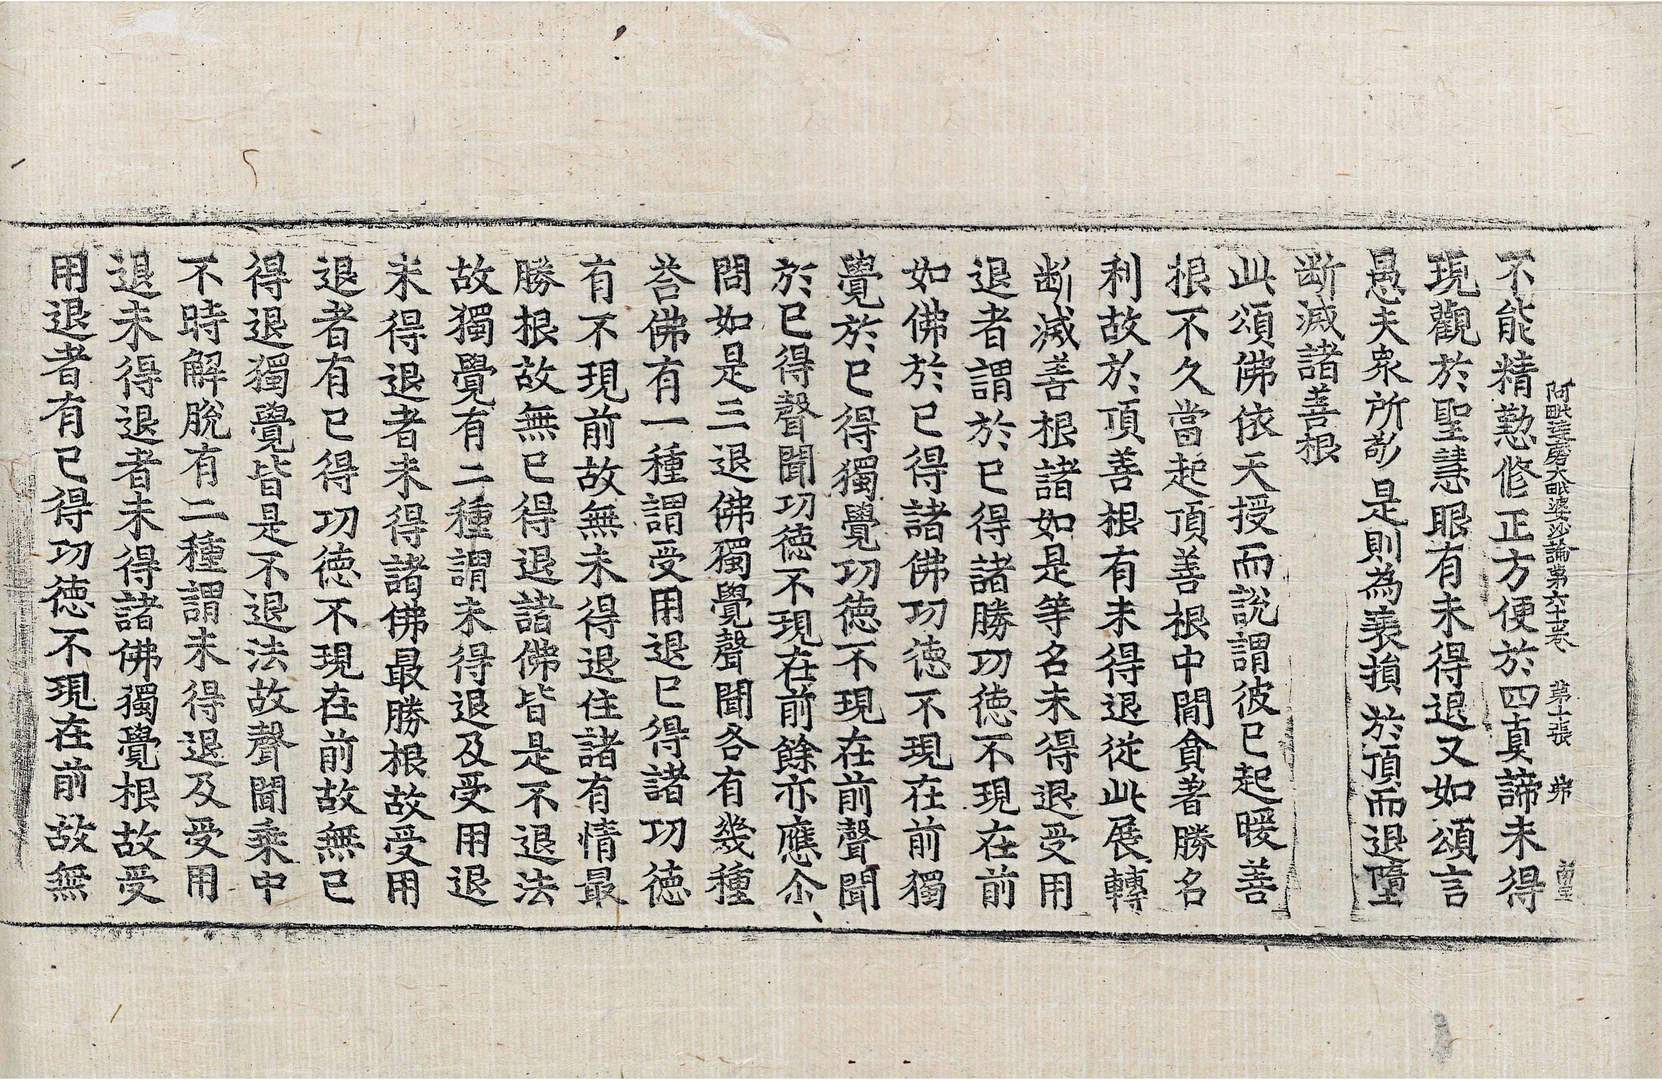 阿毗達磨大毗婆沙論第六十卷 第十張 弗
不能精懃修正方便於四真諦未得
現觀於聖慧眼有未得退又如頌言
愚夫衆所 是則為衰損於頂而退墮
斷滅諸善根
此頌佛依天授而說謂彼已起暖善
根不久當起頂善根中間貪著勝名
利故於頂善根有未得退從此展轉
斷滅善根諸如是等名未得退受用
退者謂於已得諸勝功德不現在前
如佛於已得諸佛功德不現在前獨
覺於已得獨覺功德不現在前聲聞
於已得聲聞功德不現在前餘亦應尒
問如是三退佛獨覺聲聞各有幾種
荅佛有一種謂受用退已得諸功德
有不現前故無未得退住諸有情最
勝根故無已得退諸佛皆是不退法
故獨覺有二種謂未得退及受用退
未得退者未得諸佛最勝根故受用
退者有已得功德不現在前故無已
得退獨覺皆是不退法故聲聞乘中
不時解脫有二種謂未得退及受用
退未得退者未得諸佛獨覺根故受
用退者有已得功德不現在前故無